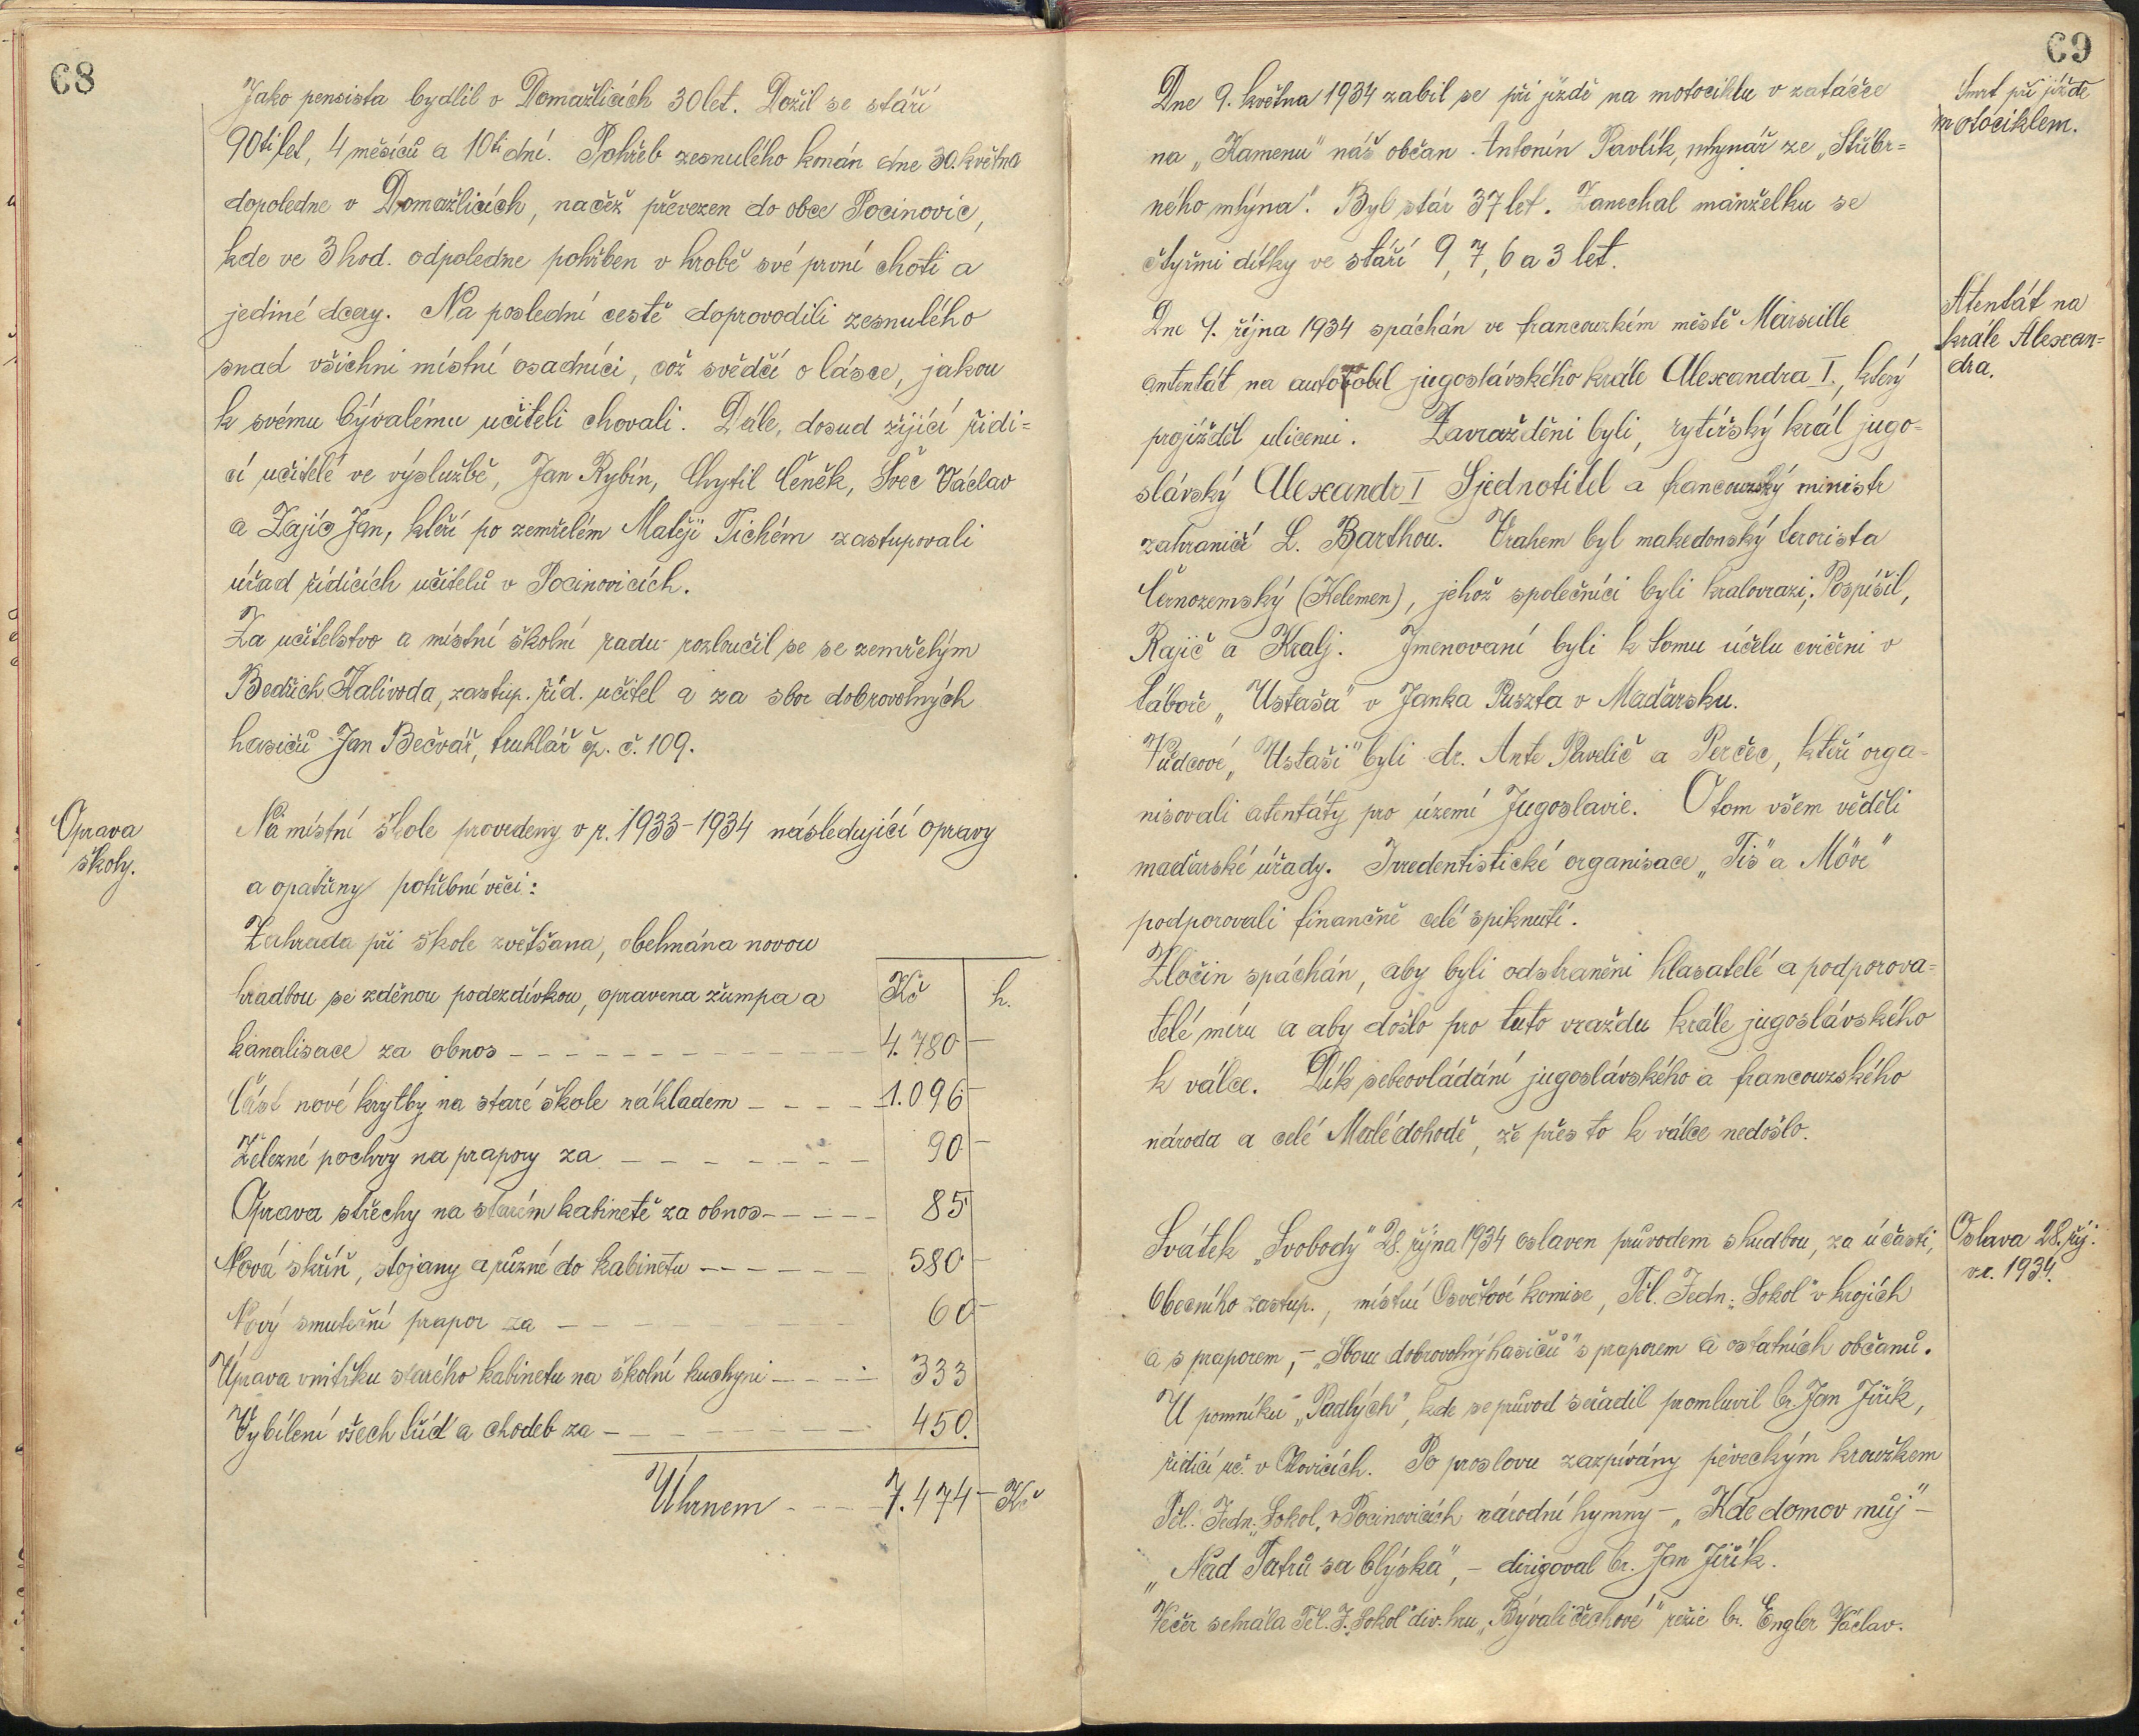 68
Jako pensista bydlil v Domažlicích 30 let. Dožil se stáří
90ti let, 4 měsíců a 10ti dní. Pohřeb zesnulého konán dne 30. května
dopoledne v Domažlicích, načež převezen do obce Pocinovic,
kde ve 3 hod. odpoledne pohřben v hrobě své první choti a
jediné dcery. Na poslední cestě doprovodili zesnulého
snad všichni místní osadníci, což svědčí o lásce, jakou
k svému bývalému učiteli chovali. Dále, dosud žijící řídi=
cí učitelé ve výslužbě, Jan Rybín, Chytil Čeněk, Švec Václav
a Zajíc Jan, kteří po zemřelém Matěji Tichém zastupovali
úřad řídících učitelů v Pocinovicích.
Za učitelstvo a místní školní radu rozloučil se se zemřelým
Bedřich Kalivoda, zastup. říd. učitel a za sbor dobrovolných
hasičů Jan Bečvář, truhlář čp. č. 109.
Oprava
školy.
Na místní škole provedeny v r. 1933-1934 následující opravy
a opatřeny potřebné věci:
Zahrada při škole zvětšana, obehnána novou
hradbou se zděnou podezdívkou, opravena žumpa a Kč h.
kanalisace za obnos - - - - 4.780 -
Část nové krytby na staré škole nákladem - - - - 1.096 -
Železné pochvy na prapory za - - - - 90 -
Oprava střechy na starém kabinetě za obnos - - - - 85
Nová skříň, stojany a různé do kabinetu - - - - 580 -
Nový smuteční prapor za - - - - 60 -
Úprava vnitřku starého kabinetu na školní kuchyni - - - - 333
Vybílení všech tříd a chodeb za - - - - 450.
Úhrnem - - - - 7.474 - Kč
69
Dne 9. května 1934 zabil se při jízdě na motociklu v zatáčce
na „Kamenu" náš občan Antonín Pavlík, mlynář ze „Stříbr=
ného mlýna". Byl stár 37 let. Zanechal manželku se
čtyřmi dítky ve stáří 9, 7, 6 a 3 let.
Smrt při jízdě
motociklem.
Dne 9. října 1934 spáchán ve francouzkém městě Marseille
antentát na automobil jugoslávského krále Alexandra I., který
projížděl ulicemi. Zavražděni byli, rytířský král jugo=
slávský Alexandr I Sjednotitel a francouzský ministr
zahraničí L. Barthou. Vrahem byl makedonský terorista
Černozemský (Kelemen), jehož společníci byli kralovrazi; Pospíšil,
Rajič a Kralj. Jmenovaní byli k tomu účelu cvičeni v
táboře „Ustaša" v Janka Puszta v Maďarsku.
Vůdcové „Ustaši" byli dr. Ante Pavelič a Perčec, kteří orga=
nisovali atentáty pro území Jugoslavie. O tom všem věděli
maďarské úřady. Irredentistické organisace „Tis" a Möve"
podporovali finančně celé spiknutí.
Zločin spáchán, aby byli odstraněni hlasatelé a podporova=
telé míru a aby došlo pro tuto vraždu krále jugoslávského
k válce. Dík sebeovládání jugoslávského a francouzského
národa a celé Malé dohodě, že přes to k válce nedošlo.
Atentát na
krále Alexan=
dra.
Svátek „Svobody" 28. října 1934 oslaven průvodem s hudbou, za účasti,
Obecního zastup., místní Osvětové komise, Těl. Jedn. „Sokol" v krojích
a s praporem, - „Sboru dobrovolný hasičů" s praporem a ostatních občanů.
U pomníku „Padlých", kde se průvod seřadil promluvil br. Jan Jiřík,
řídící uč. v Proslovu zazpívány pěveckým kroužkem
Těl. Jedn. „Sokol„ v Pocinovicích národní hymny - „Kde domov můj" -
„Nad Tatrů sa blýská", - dirigoval br. Jan Jiřík.
Večer sehrála Těl. J. „Sokol" div. hru „Bývali Čechové" režie br. Engler Václav.
Oslava 28. říj.
v r. 1934.